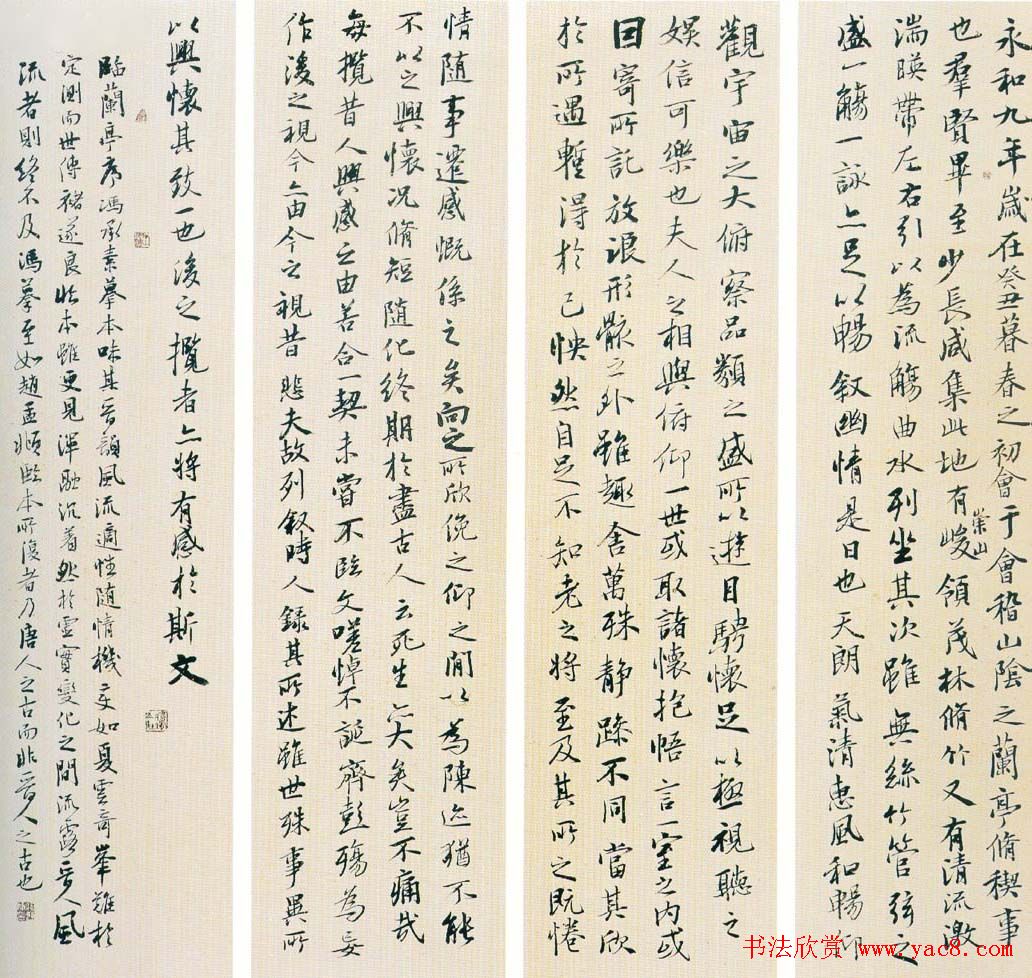 永和九年歲在癸丑暮春之初會于會稽山陰之蘭亭脩稧事
也羣賢畢至少長咸集此地有峻領茂林脩竹又有清流激
崇山
湍暎帶左右引以為流觴曲水列坐其次雖無絲竹管弦之
盛一觴一詠亦足以暢叙幽情是日也天朗氣清惠風和暢仰
觀宇宙之大俯察品類之盛所以遊目騁懷足以極視聽之
娛信可樂也夫人之相與俯仰一世或取諸懷抱悟言一室之内或
因寄所託放浪形骸之外雖趣舍萬殊静躁不同當其欣
於所遇蹔得於己怏然自足不知老之將至及其所之既惓
情随事遷感慨係之矣向之所欣俛仰之間以為陳迹猶不能
不以之興懷况脩短随化終期於盡古人云死生亦大矣豈不痛哉
每攬昔人興感之由若合一契未嘗不臨文嗟悼不誕齊彭殤為妄
作後之視今亦由今之視昔悲夫故列叙時人錄其所述雖世殊事異所
以興懷其致一也後之攬者亦將有感於斯文
臨蘭亭序馮承素摹本味其晋韻風流適性随情機变如夏雲奇峯難於
定測而世傳褚遂良臨本雖更見渾融沉着然於虚實變化之間流露晋人風
流者則終不及馮摹至如趙孟頫臨本所復者乃唐人之古而非晋人之古也
书法欣赏 www.yac8.com